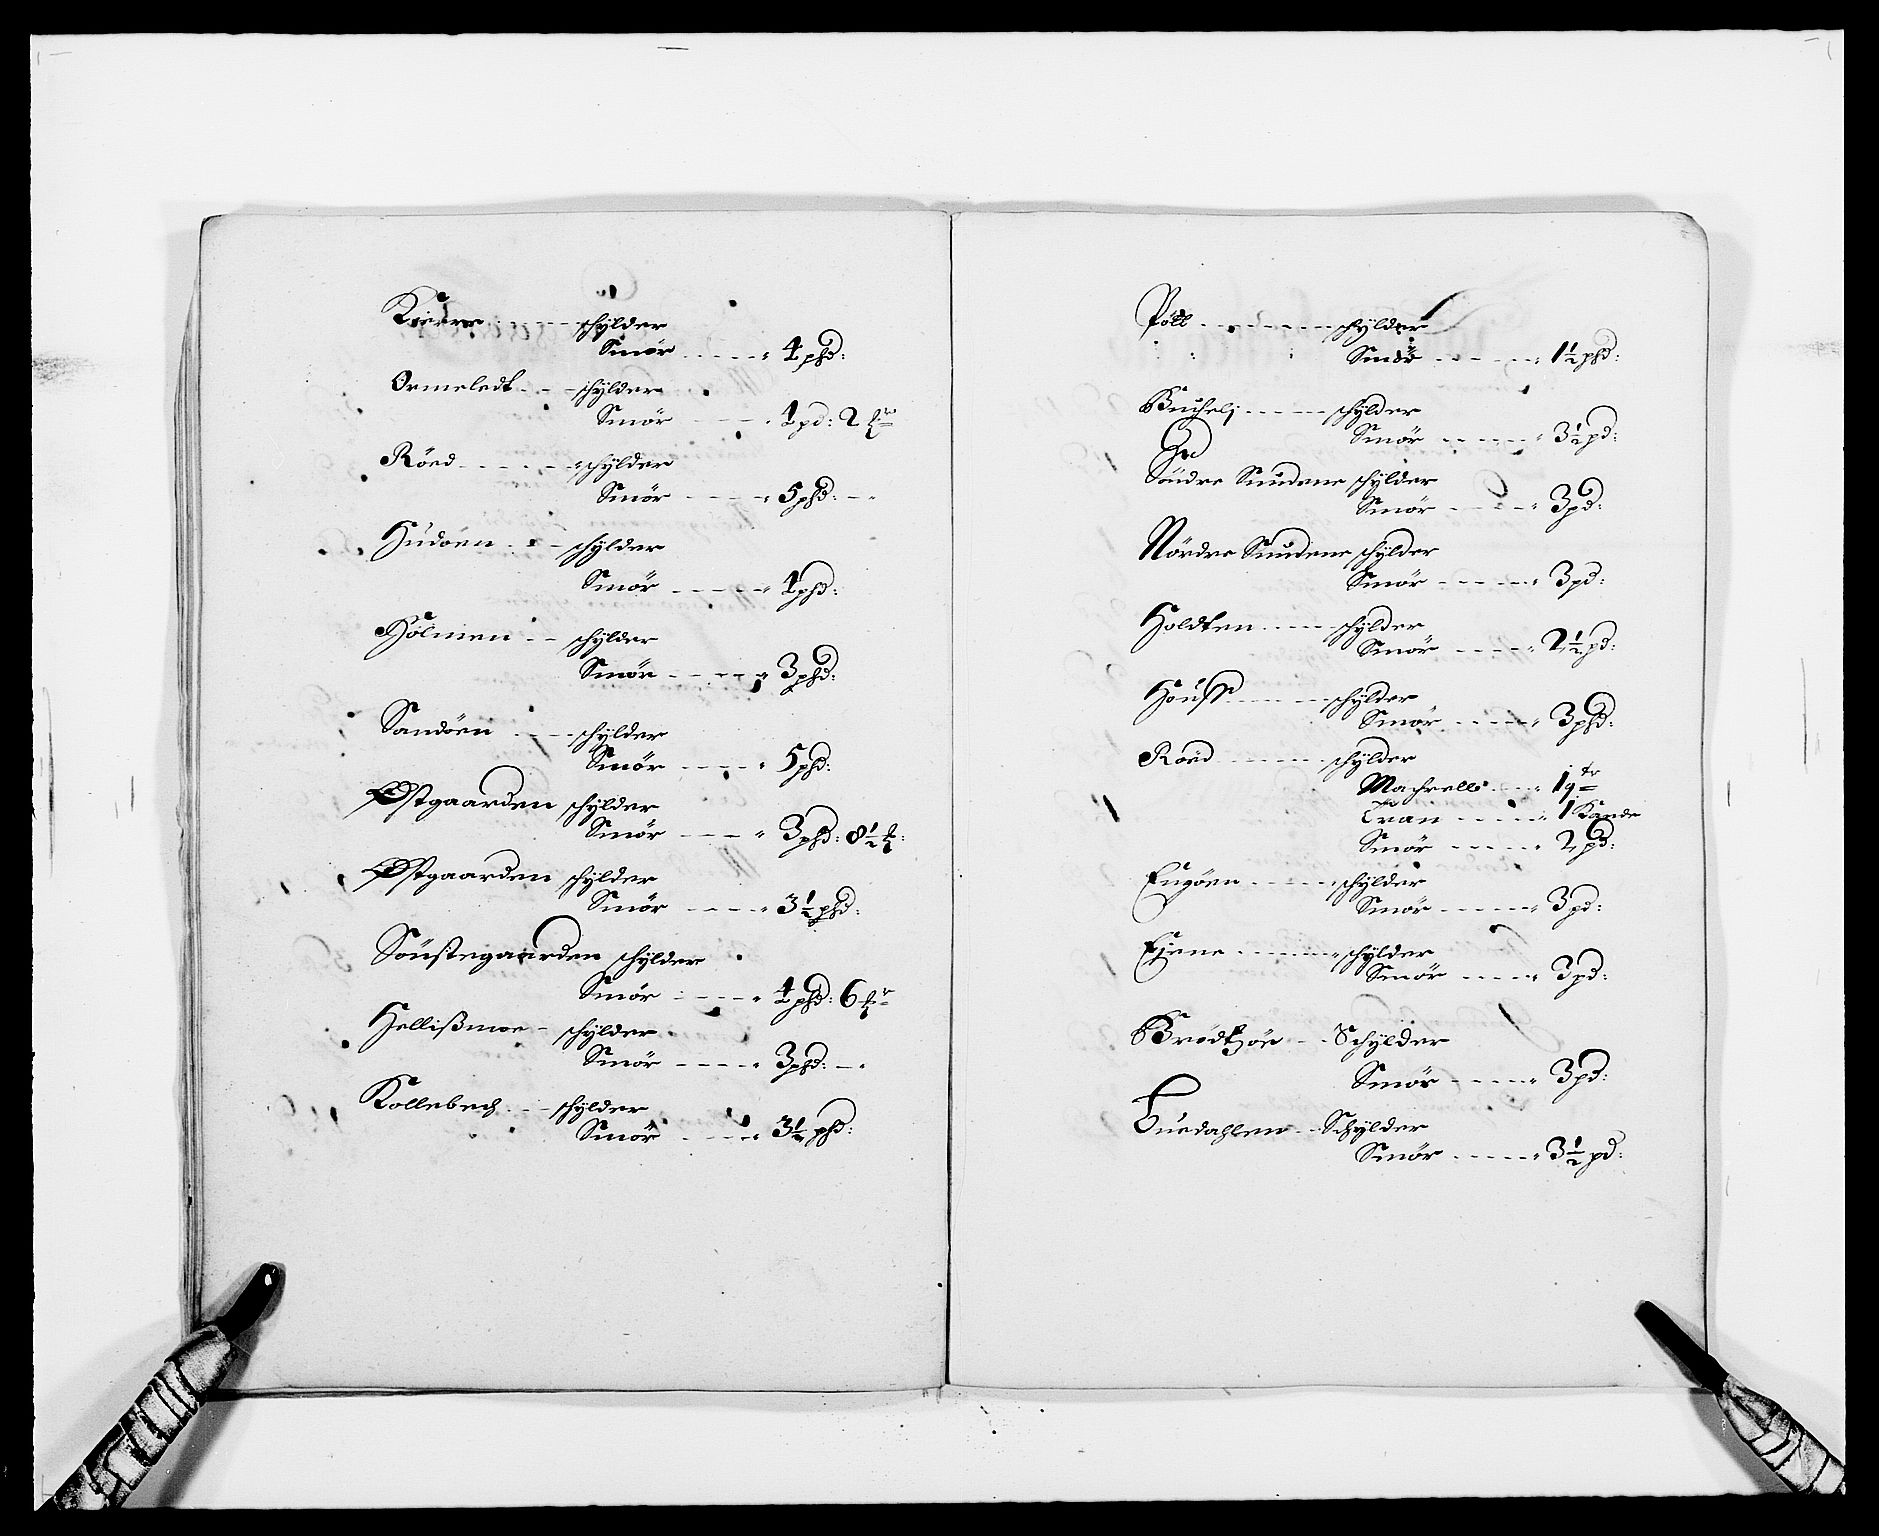 Kierre - - - schylder
Smör - - - - - 4 phd:
Ormeledt - - - schylder
Smör - - - 1 pd: 2
Röed - - - - - schylder
Smör - - - - 5 phd: -
Hüdöen - - - schylder
Smör - - - - - 1 phd:
Holmen - - schylder
Smör - - - - - 3 phd:
Sandöen - - - schylder
Smör - - - - 5 phd:
Østgaarden schylder
Smör - - - - 3 phd: 8½
Østgaarden schylder
Smör - - - - 3½ phd:
Sönstegaarden schylder
Smör - - - - 4 phd: 6
Hellißmoe - schylder
Smör - - - - 3 phd: -
Kollebech - - schylder
Smör - - - - 3½ phd:
Pöll - - - - - - schylder
Smör - - - - - 1½ phd:
Buchelj - - - - schylder
Smör - - - - - 3½ pd:
Söndre Sundene schylder
Smör - - - - 3 pd:
Nördre Sundene schylder
Smör - - - - - 3 pd:
Holdten - - - - schylder
Smör - - - - 2½ pd:
Höuff - - - - schylder
Smör - - - - - 3 phd:
Röed - - - - - schylder
Machrell - - - 1 qtr
Tran - - - - - 1 Kande
Smör - - - - - 2 pd:
Eugöen - - - - schylder
Smör - - - - - 3 pd:
Ejene - - - - - schylder
Smör - - - - 3 pd:
Brödtzöe - - Schylder
Smör - - - - - 3 pd:
Tuedahlen - - Schylder
Smör - - - - - 3½ pd: